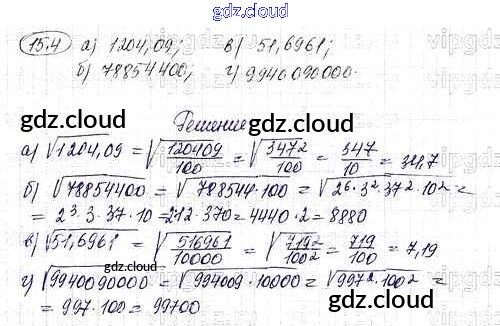 gdz.cloud
15.4 а) 1204,09; в) 51,6961;
б) 78854400; г) 9940090000.
gdz.cloud gdz.cloud
Решение
а) √1204,09 = √120409/100 = √347²/100 = 347/10 = 34,7
б) √78854400 = √788544·100 = √2⁶·3²·37²·10² =
= 2³·3·37·10 = 212·370 = 4440·2 = 8880
в) √51,6961 = √516961/10000 = √719²/100² = 719/100 = 7,19
г) √9940090000 = √994009·10000 = √997²·100² =
= 997·100 = 99700
gdz.cloud gdz.cloud